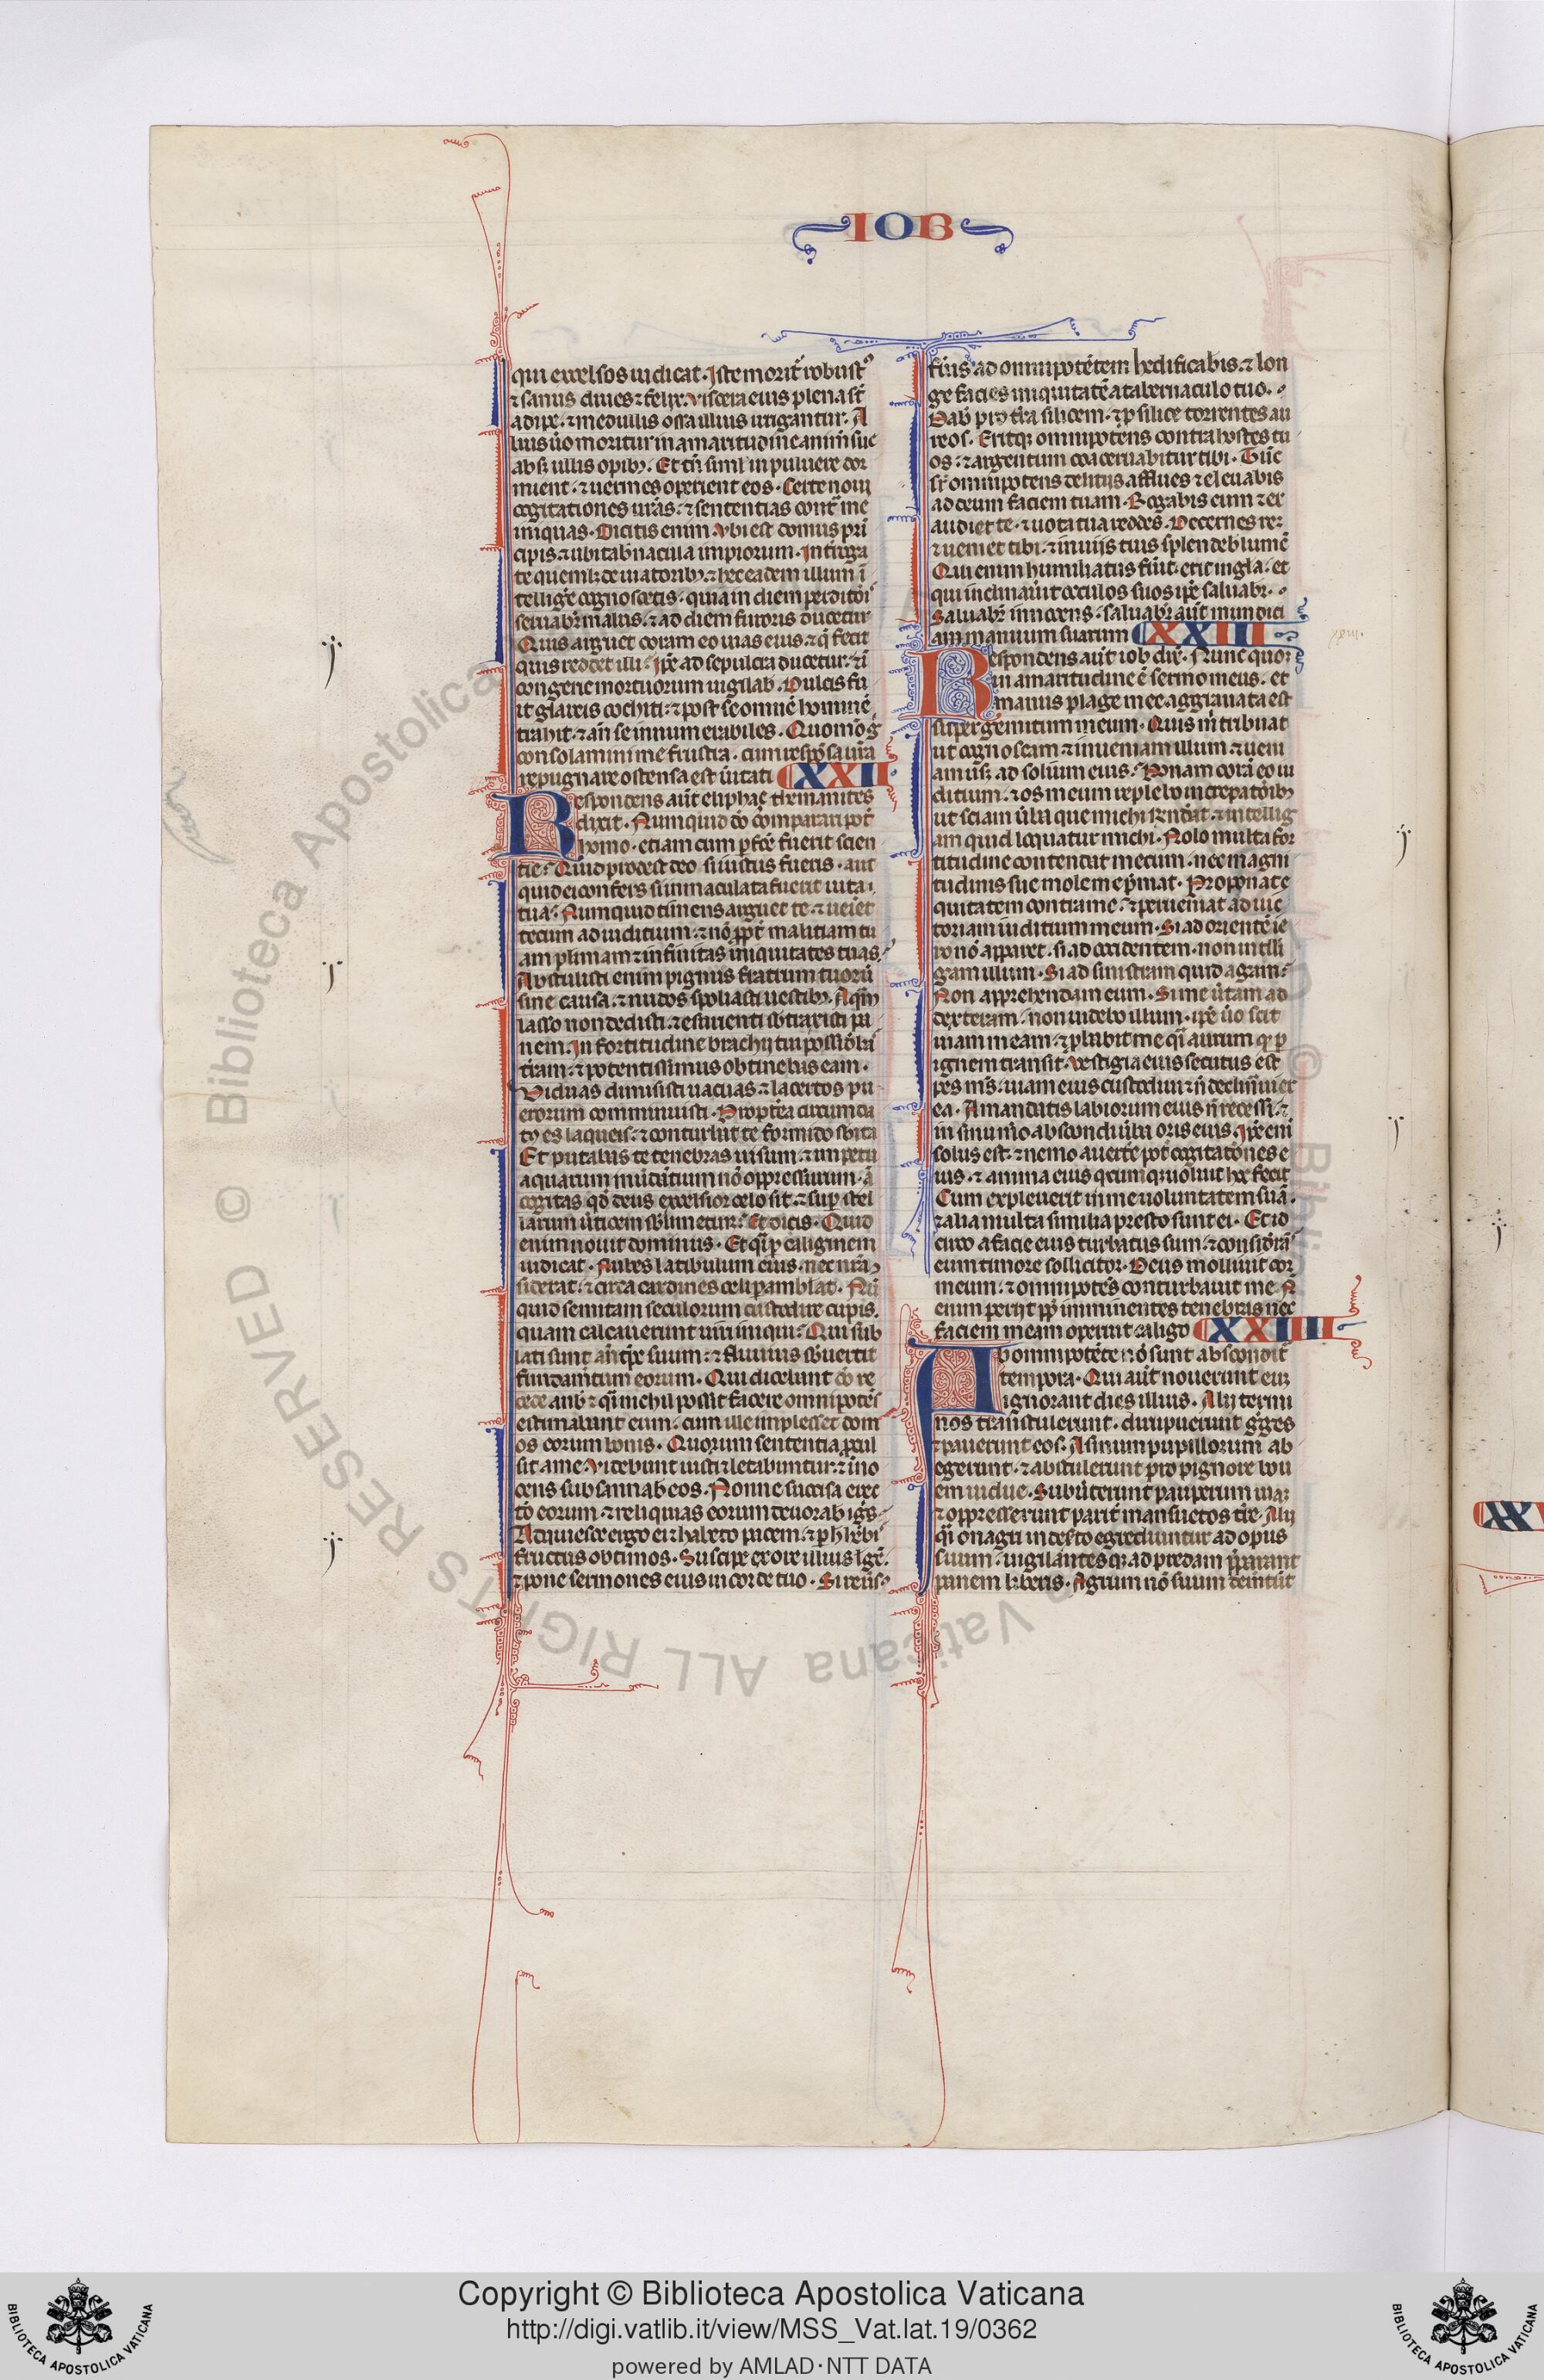 IOB
qui excelsos iudicat. Iste morit̃ robust᷒
⁊ sanus diues ⁊ felix. Viscera eius plena st̃
adipe. ⁊ medullis ossa illius irrigantur. A
lius ũo moritur in amaritudine anime sue
absqꝫ ullis opibꝫ. Et tñ simĺ in puluere dor
mient. ⁊ uermes operient eos. Certe noui
cogitationes ur̃as. ⁊ sententias contͣ me
iniquas. Dicitis enim. Vbi est domus pri
cipis. ⁊ ubi tab̃nacula impiorum. Int̃roga
te quemlꝫ de uiatoribꝫ. ⁊ hec eadem illum ĩ
tellige᷒ cognoscetis. quia in diem perditõĩ
seruab̃r malus. ⁊ ad diem furoris ducetur
Quis arguet coram eo uias eius. ⁊ q̃ fecit
quis reddet illi. Ip̃e ad sepulcra ducetur. ⁊ ĩ
congerie mortuorum uigilab̃. Dulcis fu
it glareis cochiti. ⁊ post se omnẽ hominẽ
trahit. ⁊ an̄ se innumerabiles. Quomõ g̃
consolamini me frustra. cum respõsa ur̃a
repugnare ostensa est ũitati XXII
Respondens aũt eliphaç themanites
dixit. Numquid dõ cõparari pot̃
homo. etiam cum ꝑfc̃e fuerit scien
tie. Quid prodest deo si iustus fueris. aut
quid ei confers si inmaculata fuerit uita
tua. Numquid timens arguet te. ⁊ ueiet
tecum ad iuditium. ⁊ nõ ꝓpt̃ malitiam tu
am plimam ⁊ infinitas iniquitates tuas.
Abstulisti enim pignus fratrum tuorũ
sine causa. ⁊ nudos spoliasti uestibꝫ. Aqͣm
lasso non dedisti. ⁊ esurienti sb̃traxisti pa
nem. In fortitudine brachij tui possid̃bã
t̃ram. ⁊ potentissimus obtinebas eam.
Viduas dimisisti uacuas. ⁊ lacertos pu
erorum comminuisti. Propt̃ea circumda
tꝰ es laqueis. ⁊ conturbat te formido sb̃ita
Et putabas te tenebras ñ uisurum. ⁊ impetu
aquarum
cogitas qđ deus excelsior celo sit. ⁊ suꝑ stel
larum ũticem sb̃limetur. Et dicis. Quid
enim nouit dominus. Et qͣ ꝑ caliginem
iudicat. Nubes latibulum eius. nec nr̃a
siderat. ⁊ circa cardines celi ꝑamblat. Nũ
quid semitam seculorum custodire cupis.
quam calcauerunt uiri iniqui. Qui sub
lati sunt añ tp̃e suum. ⁊ fluuius sb̃uertit
fundam̃tum eorum. Qui dicebant dõ re
cede a nob̃. ⁊ qͣi nichil possit facere omnipotẽs
estimabant eum. cum ille implesset dom
os eorum bonis. Quorum sententia ꝓcul
sit a me. Videbunt iusti ⁊ letabuntur. ⁊ ĩno
cens subsannab̃ eos. Nonne succisa erec
tõ eorum. ⁊ reliquias eorum deuorab̃ igñs.
Adquiesce ergo ei ⁊ habeto pacem. ⁊ ꝑ h̃ hẽbi
fructus obtimos. Suscipe ex ore illius lg̃ẽ.
⁊ pone sermones eius in corde tuo. Si reũs
fũis ad omnipotẽtem hedificab̃is. ⁊ lon
ge facies iniquitatẽ a tabernaculo tuo.
Dab̃ pro t̃ra silicem. ⁊ ꝑ silice torrentes au
reos. Eritqꝫ omnipotens contra hostes tu
os. ⁊ argentum coaceruabitur tibi. Tũc
sr̃ omnipotens delitijs afflues ⁊ eleuabis
ad deum faciem tuam. Rogabis eum ⁊ ex
audiet te. ⁊ uota tua reddes. Decernes reꝫ
⁊ ueniet tibi. ⁊ in uijs tuis splendeb̃ lumẽ
Qui enim humiliatus fũit. erit in gla. et
qui inclinaũit oculos suos ip̃e saluab̃r.
Saluab̃r innocens. saluab̃r aũt mundici
a manuum suarum XXIII
Respondens aũt iob dix̃. Nunc quoꝫ
in amaritudine ẽ sermo meus. et
manus plage mee aggrauata est
super gemitum meum. Quis m̃ tribuat
ut cognoscam ⁊ inueniam illum. ⁊ ueni
am usqꝫ ad solium eius. Ponam corã eo iu
ditium. ⁊ os meum replebo increpatõibꝫ
ut sciam ũba que michi rñdeat. ⁊ intellig
am quid loquatur michi. Nolo multa for
titudine contendat mecum. nec magni
tudinis sue mole me p̃mat. Proponat e
quitatem contra me. ⁊ perueniat ad uic
toriam iuditium meum. Si ad orientẽ ie
ro nõ apparet. si ad occidentem. non intelli
gam illum. Si ad sinistram quid agam.
Non apprehendam eum. Si me ũtam ad
dexteram. non uidebo illum. ip̃e ũo scit
uiam meam. ⁊ ꝓbabit me qͣi aurum qđ ꝑ
ignem transit. Vestigia eius secutus est
pes mẽs. uiam eius custodiui ⁊ ñ declinaui ex
ea. A mandatis labiorum eius ñ recessi. ⁊
in sinu mõ abscondi ũba oris eius. Ip̃e eni
solus est. ⁊ nemo auerte᷒ pot̃ cogitatõnes e
ius. ⁊ anima eius qđcumqꝫ uoluit hoc fecit
Cum expleuerit in me uoluntatem suã.
⁊ alia multa similia presto sunt ei. Et id
circo a facie eius turbatus sum. ⁊ consid̃rãs
eum timore sollicitor. Deus molliuit cor
meum. ⁊ omnipotẽs conturbauit me. Ñ
enim perij ꝓp̃ imminentes tenebras nec
faciem meam operuit caligo XXIIII
Ab omnipotẽte nõ sunt abscondit̃
tempora. Qui aũt nouerunt eũ
ignorant dies illius. Alij termi
nos transtulerunt. diripuerunt g̃ges
⁊ pauerunt eos. Asinum pupillorum ab
egerunt. ⁊ abstulerunt pro pignore bou
em uidue. Subũterunt pauperum uiaꝫ
⁊ oppresserunt parit̃ mansuetos tr̃e. Alij
qͣi onagri in deserto egrediuntur ad opus
suum. uigilantes qꝫ ad predam p̃parant
panem liberis. Agrum nõ suum demetũt
Copyright © Biblioteca Apostolica Vaticana
http://digi.vatlib.it/view/MSS_Vat.lat.19/0362
powered by AMLAD·NTT DATA
BIBLIOTECA APOSTOLICA VATICANA
BIBLIOTECA APOSTOLICA VATICANA
© Biblioteca Apostolica Vaticana ALL RIGHTS RESERVED